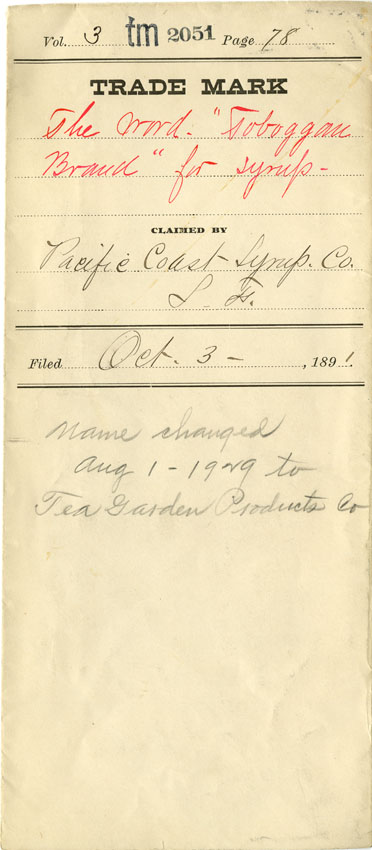 Vol. 3 tm 2051 Page 78
TRADE MARK
The word. "Toboggan
Brand" for syrup-
CLAIMED BY
Pacific Coast Syrup. Co.
S. F.
Filed Oct. 3 - , 1891.
Name changed
Aug 1 - 1929 to
Tea Garden Products Co